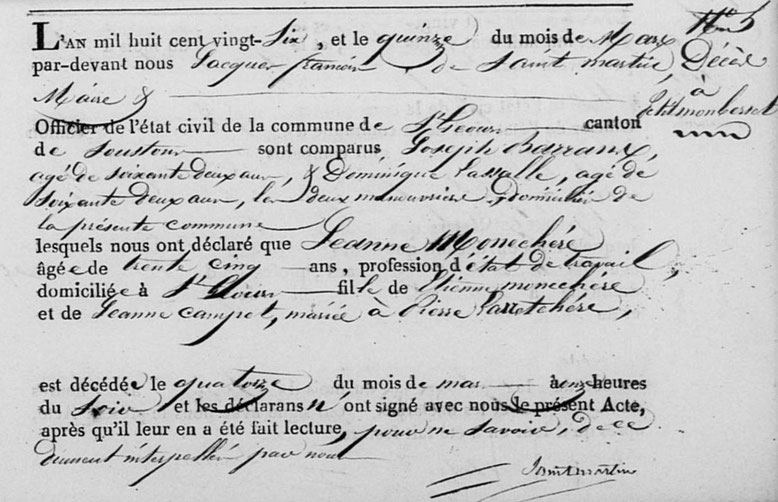 L'AN mil huit cent vingt-Six, et le quinze du mois de Mars
par-devant nous Jacques françois de Saint martin,
Maire &
Officier de l'état civil de la commune de St Geours canton
de Soustons sont comparus Joseph Barraux,
agé de soixante deux ans, & Dominique Lassalle, agé de
soixante deux ans, les deux manouvriers, Domiciliés de
la présente commune
lesquels nous ont déclaré que Jeanne Monechéré
âgée de trente cinq ans, profession d'état de travail,
domiciliée à St Geours fille de Etienne monechére
et de Jeanne campet, mariée à Pierre
est décédée le quatorze du mois de mars à onze heures
du Soir et les déclarans n'ont signé avec nous le présent Acte,
après qu'il leur en a été fait lecture, pour ne savoir, de ce
dument interpellés par nous
Saintmartin
N° 5
Décès
à